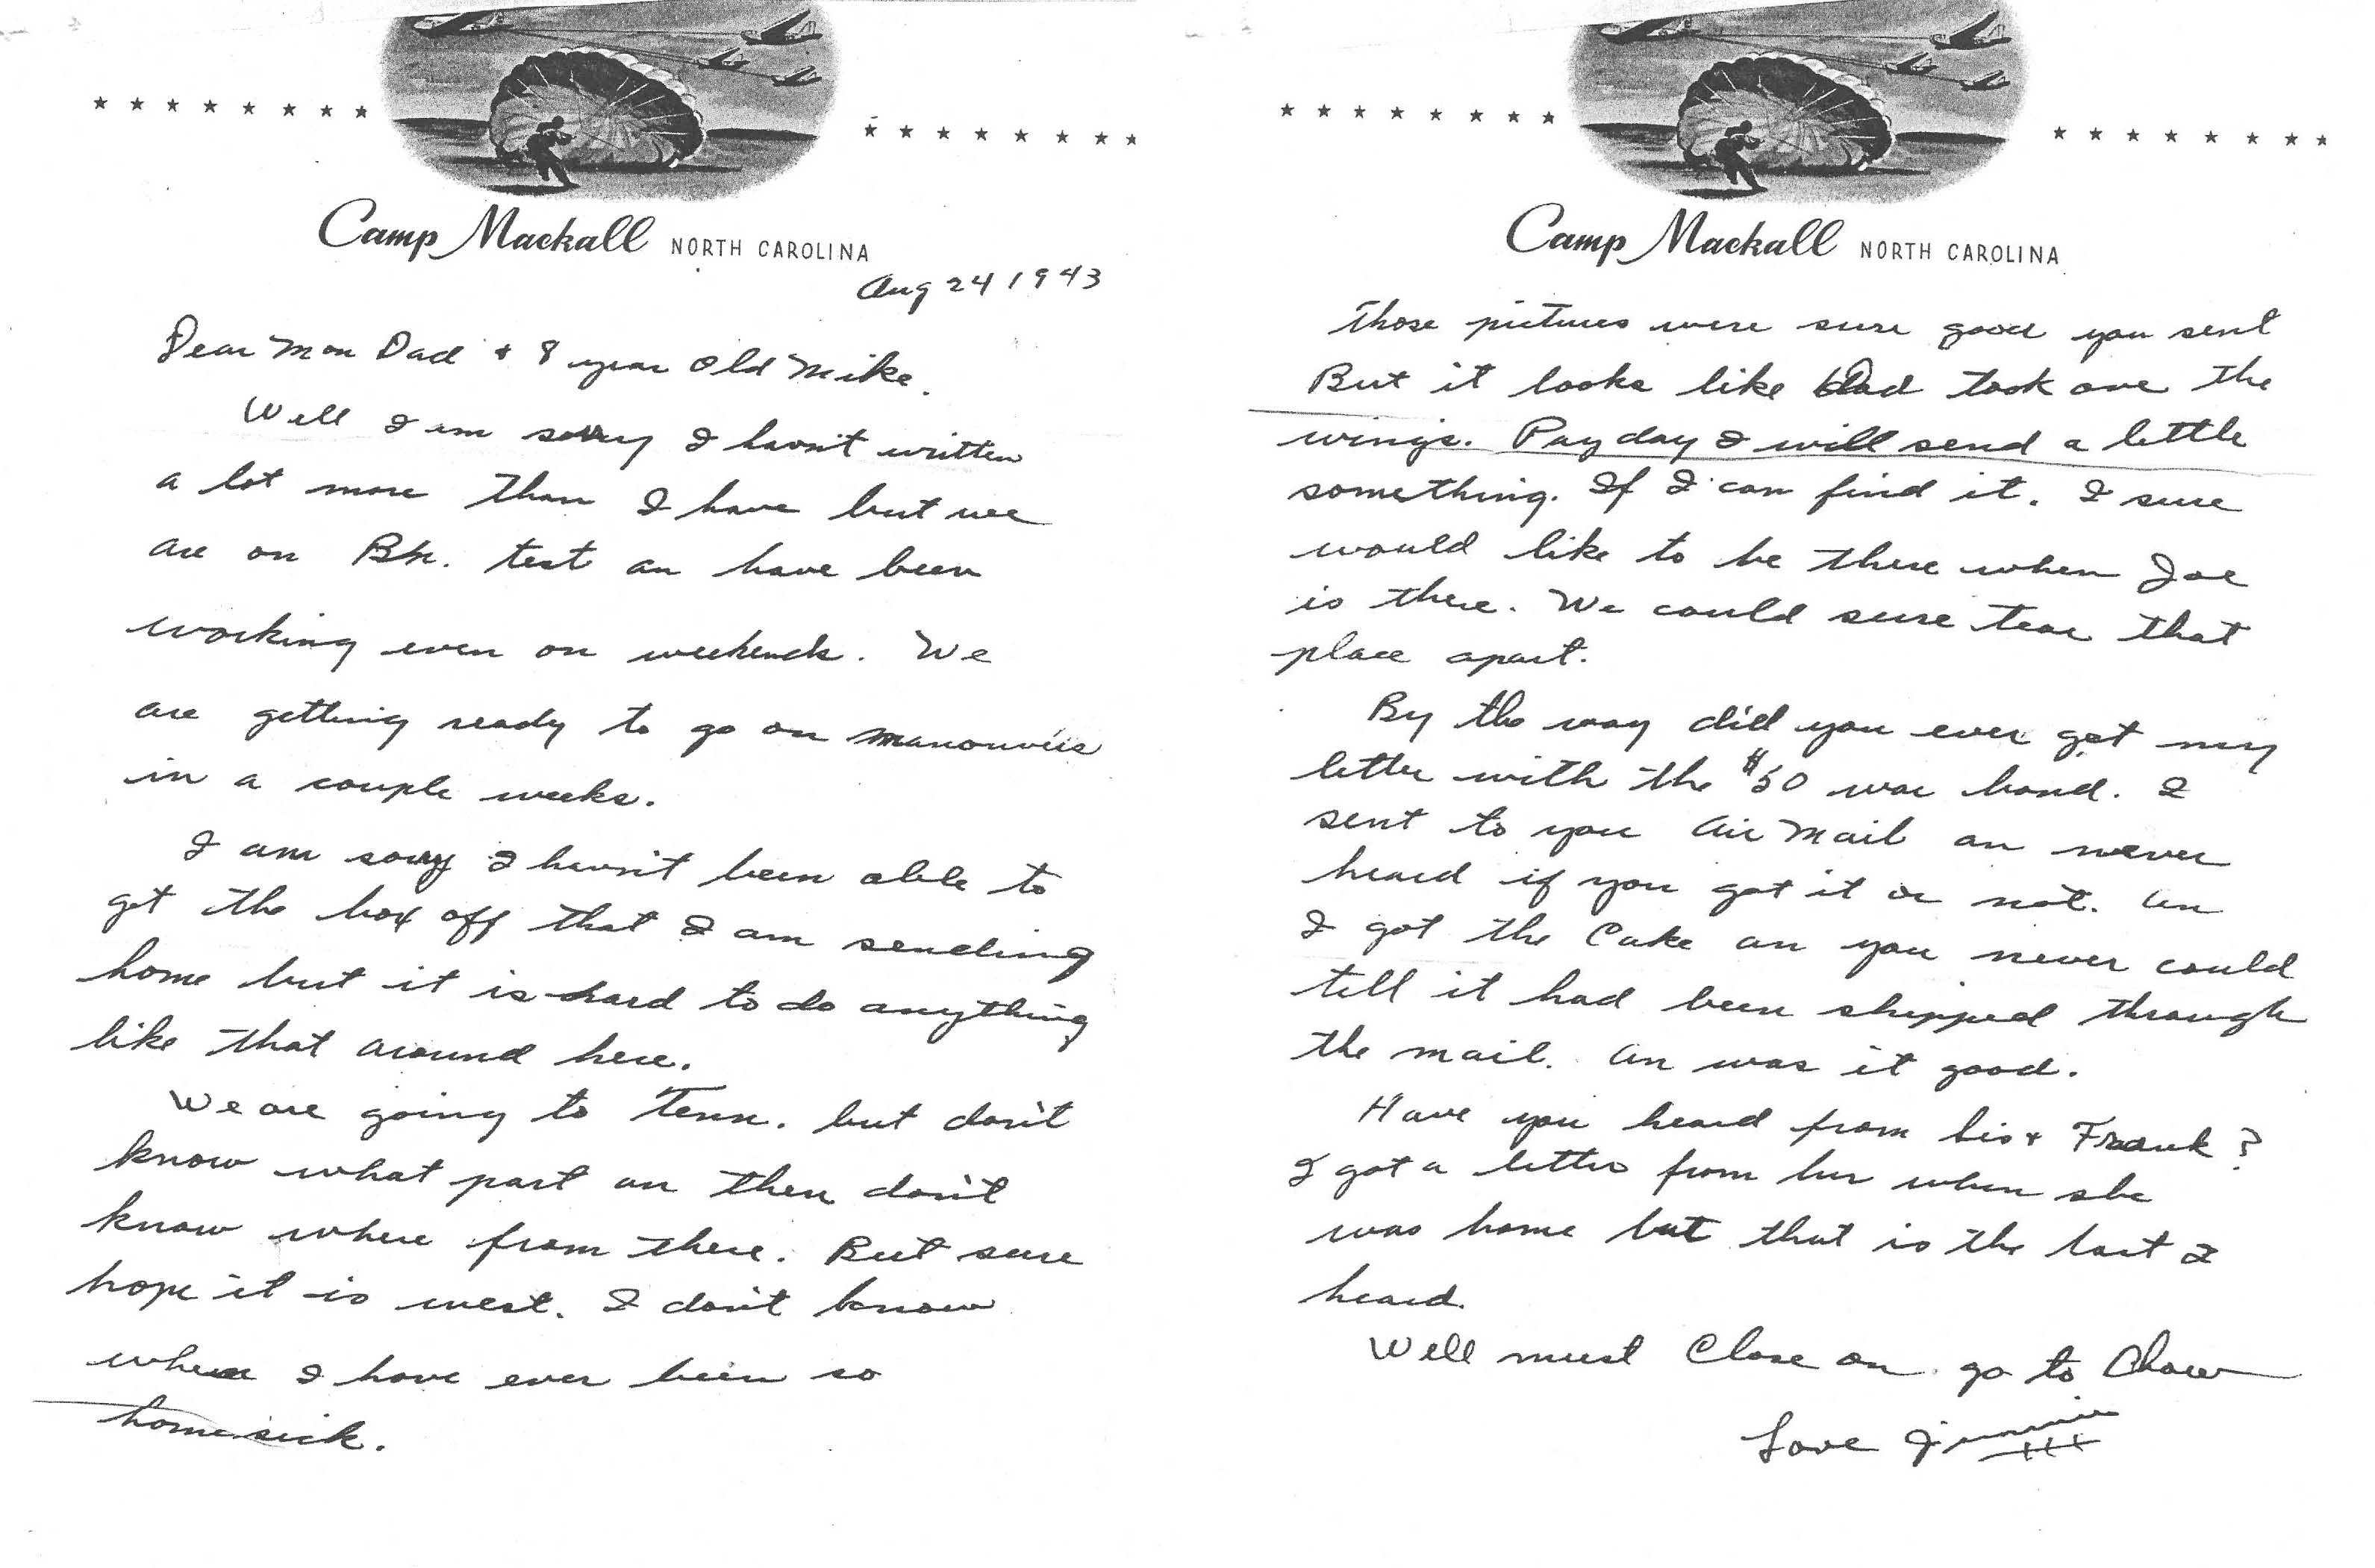 Camp Mackall NORTH CAROLINA
Aug 24 1943
Dear Mom Dad & 8 year old Mike.
Well I am sorry I havn't written
a lot more than I have but we
are on Bn. test an have been
working even on weekends. We
are getting ready to go on manouvers
in a couple weeks.
I am sorry I havn't been able to
get the box off that I am sending
home but it is hard to do anything
like that around here.
We are going to Tenn. but don't
know what part an then don't
know where from there. But sure
hope it is west. I don't know
when I have ever been so
homesick.
Camp Mackall NORTH CAROLINA
Those pictures were sure good you sent
But it looks like Dad took ove the
wings. Payday I will send a little
something. If I can find it. I sure
would like to be there when Joe
is there. We could sure tear that
place apart.
By the way did you ever get my
letter with the $50 war bond. I
sent to you Air Mail an never
heard if you got it or not. An
I got the Cake an you never could
tell it had been shipped through
the mail. An was it good.
Have you heard from Sis & Frank?
I got a letter from her when she
was home but that is the last I
heard.
Well must Close an go to Chow
Love Jimmie
xxx